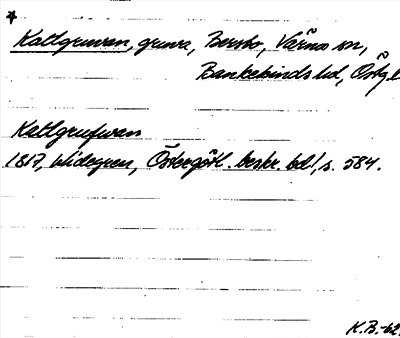 *
Kattgruvan, gruva, Bersbo, Värna sn,
Bankekinds hd, Östg.l.
Kattgrufwan
1817, Widegren, Östergötl. beskr. bd 1, s. 584.
K.B.-62.